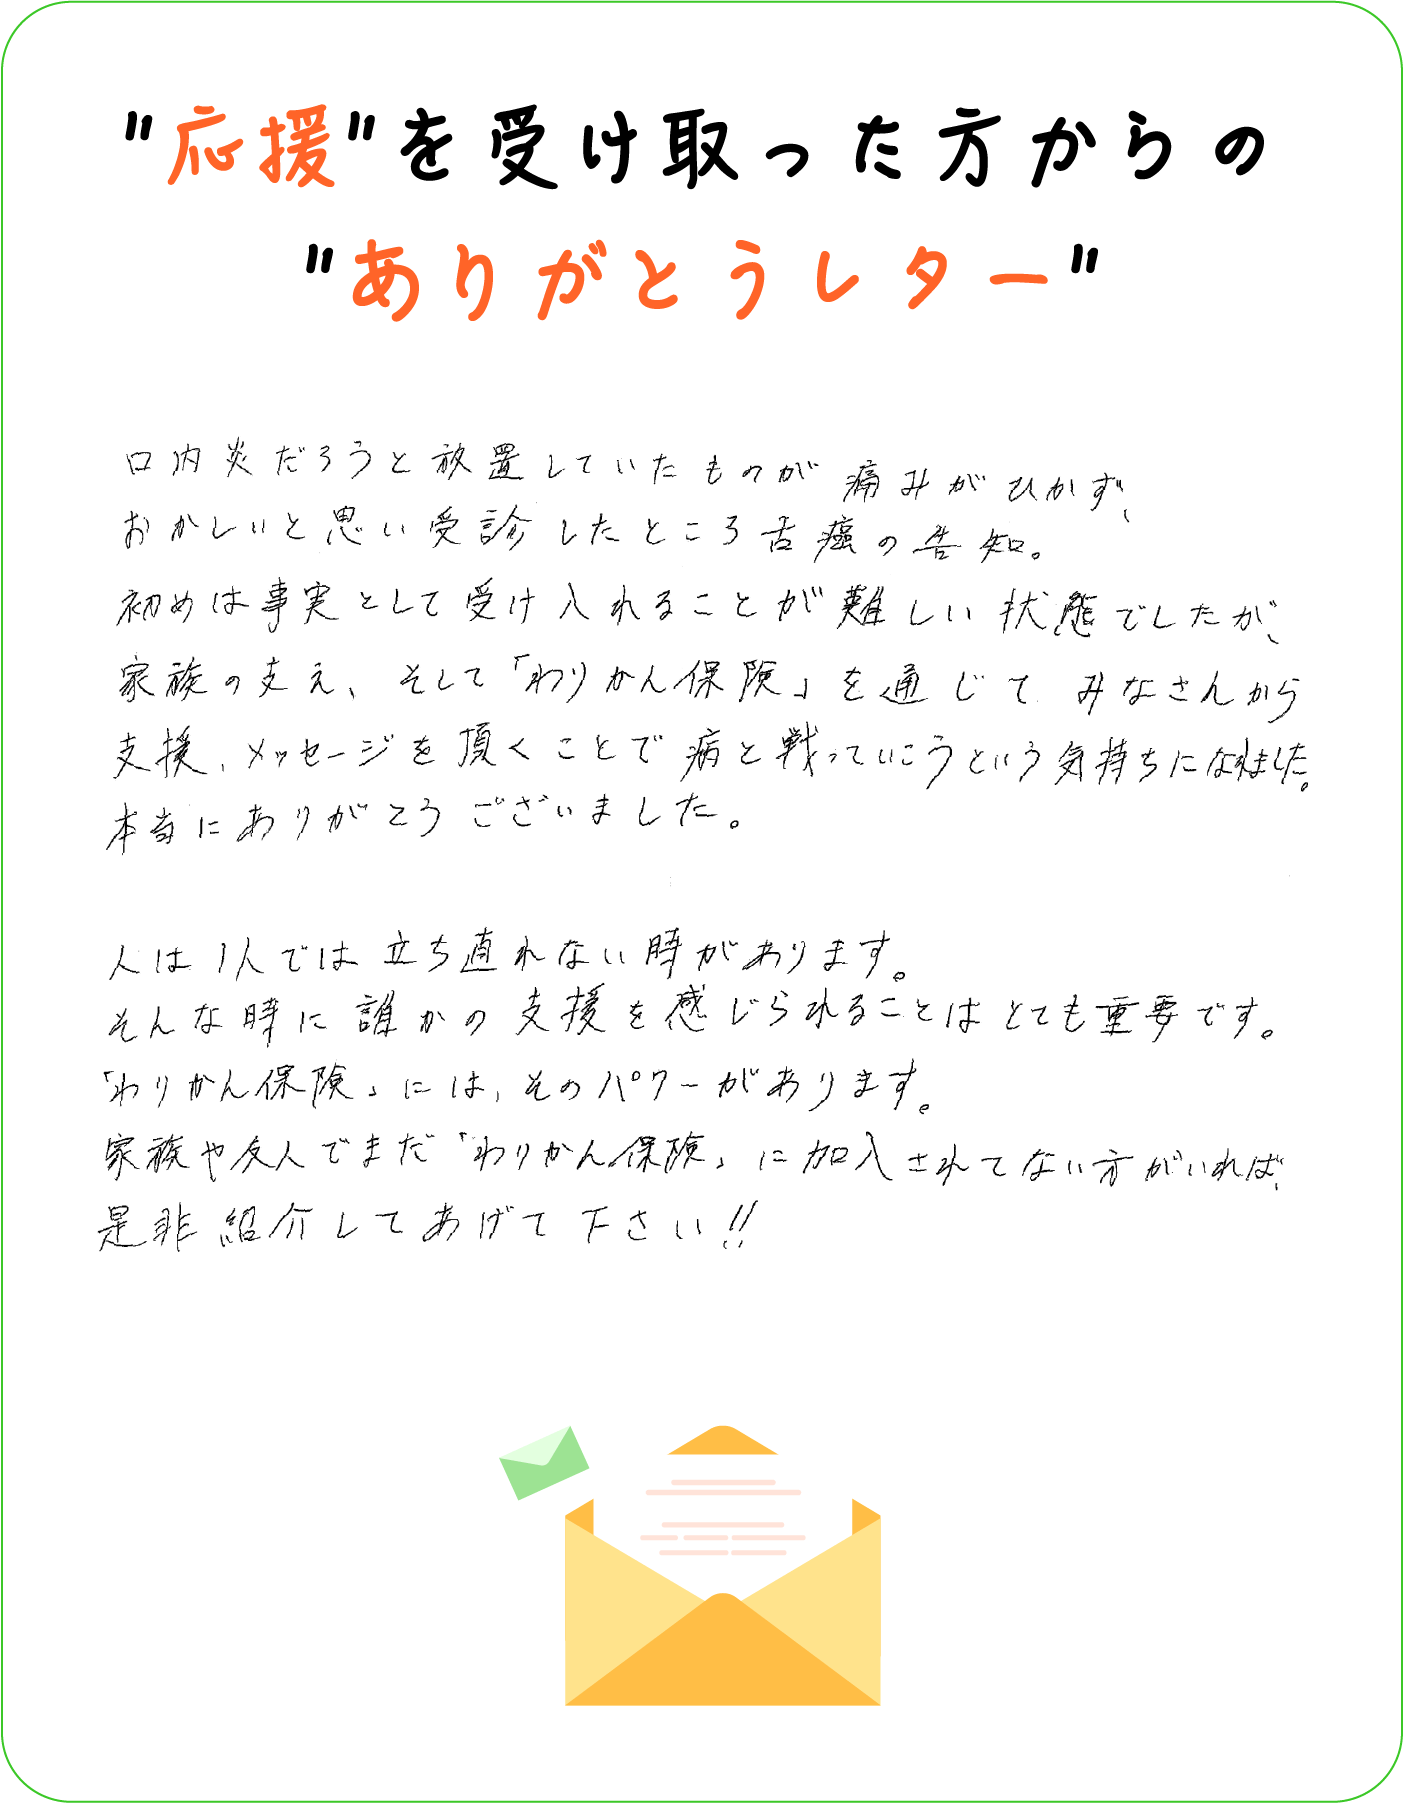 "応援"を受け取った方からの
"ありがとうレター"
口内炎だろうと放置していたものが痛みがひかず、
おかしいと思い受診したところ舌癌の告知。
初めは事実として受け入れることが難しい状態でしたが、
家族の支え、そして「わりかん保険」を通じて、みなさんから
支援、メッセージを頂くことで病と戦っていこうという気持ちになれました。
本当にありがとうございました。
人は1人では立ち直れない時があります。
そんな時に誰かの支援を感じられることはとても重要です。
「わりかん保険」には、そのパワーがあります。
家族や友人でまだ「わりかん保険」に加入されてない方がいれば、
是非紹介してあげて下さい!!